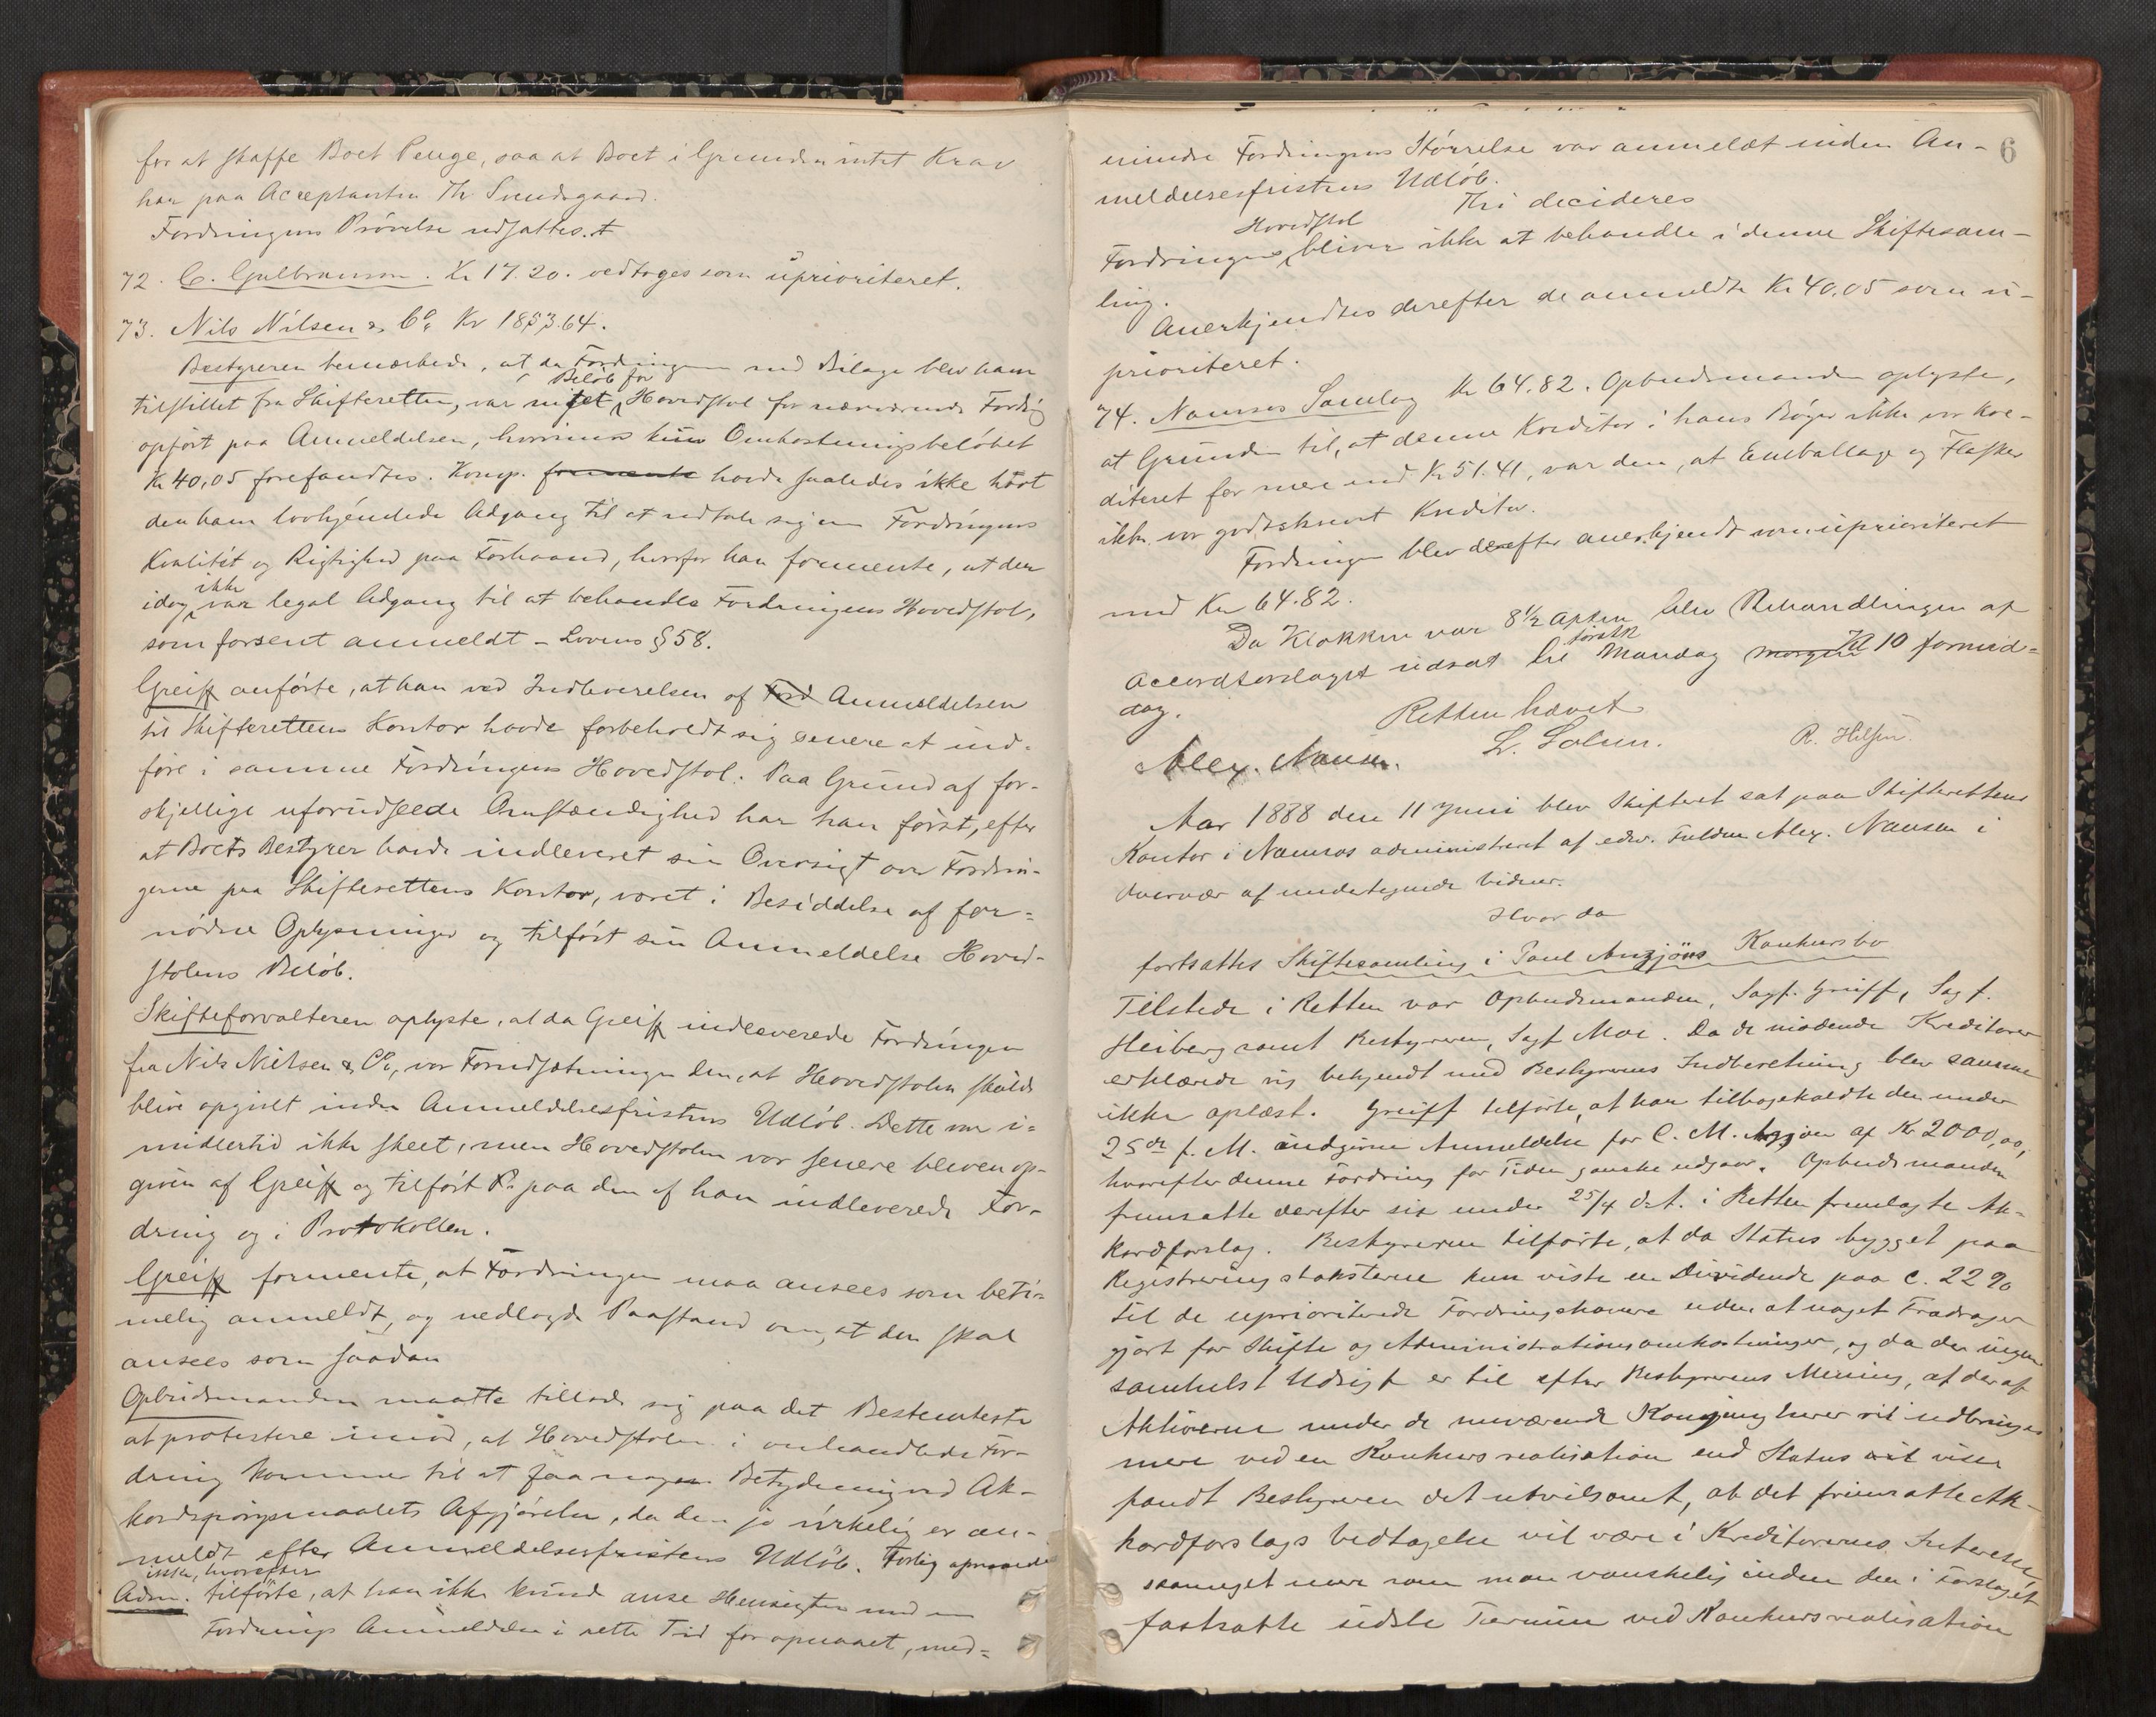 for at skaffe Boet Penge, saa at Boet i Grunden intet Krav
har paa Acceptanten Th. Svendsgaard.
Fordringens Prøvelse udsattes.
72. C. Gulbranson. Kr 17.20. vedtoges som uprioriteret.
73. Nils Nilsen & Co. Kr 1853.64.
Bestyreren bemærkede, at da Fordringen med Bilage blev ham
tilstillet fra Skifteretten, var intet Beløb for Hovedstol for nærværende Fordrig
opført paa Anmeldelsen, hvorimod kun Omkostningsbeløbet
Kr 40,05 forefandtes. Komp. formente havde saaledes ikke havt
den ham lovhjemlede Adgang til at udtale sig om Fordringens
Kvalitét og Rigtighed paa Forhaand, hvorfor han formente, at der
idag ikke var legal Adgang til at behandle Fordringens Hovedstol,
som forsent anmeldt – Lovens § 58.
Greiff anførte, at han ved Indleverelsen af Ford Anmeldelsen
til Skifterettens Kontor havde forbeholdt sig senere at ind-
føre i samme Fordringens Hovedstol. Paa Grund af for-
skjellige uforudseede Omstændighed har han først, efter
at Boets Bestyrer havde indleveret sin Oversigt over Fordrin-
gerne paa Skifterettens Kontor, været i Besiddelse af for-
nødne Oplysninger og tilført sin Anmeldelse Hoved-
stolens Beløb.
Skifteforvalteren oplyste, at da Greiff indleverede Fordringen
fra Nils Nielsen & Co, var Forudsætningen den, at Hovedstolen skulde
blive opgivet inden Anmeldelsesfristens Udløb. Dette var i-
midlertid ikke skeet, men Hovedstolen var senere bleven op-
given af Greiff og tilført P. paa den af ham indleverede For-
dring og i Protokollen.
Greiff formente, at Fordringen maa ansees som beti-
melig anmeldt, og nedlagde Paastand om, at den skal
ansees som saadan
Opbudsmanden maatte tillade sig paa det Bestemteste
at protestere imod, at Hovedstolen i omhandlede For-
dring kommer til at faa nogen Betydning ved Ak-
kordspørgsmaalets Afgjørelse, da den jo virkelig er an-
meldt efter Anmeldelsesfristens Udløb. Forlig opnaaedes
ikke, hvorefter
Adm. tilførte, at han ikke kunde anse Hensigten med en
Fordrings Anmeldelse i rette Tid for opnaaet, med-
6
mindre Fordringens Størrelse var anmeldt inden An-
meldelsesfristens Udløb.
Thi decideres
Fordringens Hovedstol bliver ikke at behandle i denne Skiftesam-
ling.
Anerkjendtes derefter de anmeldte Kr 40,05 som u-
prioriteret.
74. Namsos Samlag Kr 64.82. Opbudsmanden oplyste,
at Grunden til, at denne Kreditor i hans Bøger ikke var kre-
diteret for mere end Kr 51.41, var den, at Emballage og Flasker
ikke var godtskrevet Kreditor.
Fordringen blev derefter anerkjendt som uprioriteret
med Kr 64.82.
Da Klokken var 8½ Aften blev Behandlingen af
Accordforslaget udsat til første Mandag morgen Kl 10 formid-
dag.
Retten hævet
Alex. Nansen. L. Solem. R. Hilsen.
Aar 1888 den 11 Juni blev Skifteret sat paa Skifterettens
Kontor i Namsos administreret af edsv. Fuldm Alex. Nansen i
Overvær af undertegnede Vidner.
Hvor da
fortsattes Skiftesamling i Paul Anzjøns Konkursbo
Tilstede i Retten var Opbudsmanden, Sagf. Greiff, Sagf.
Heiberg samt Bestyreren, Sagf Moe. Da de mødende Kreditorer
erklærede sig bekjendt med Bestyrerens Indberetning blev samme
ikke oplæst. Greiff tilførte, at han tilbagekaldte den under
25de f. M. indgivne Anmeldelse for C. M. Anzjøn af Kr 2000,00,
hvorefter denne Fordring for Tiden ganske udgaar. Opbudsmanden
fremsatte derefter sit under 25/4 d.A. i Retten fremlagte Ak-
kordforslag. Bestyreren tilførte, at da Status bygget paa
Registreringstaksterne kun viste en Dividende paa c. 22 %
til de uprioriterede Fordringshavere uden at noget Fradrag er
gjort for Skifte og Administrationsomkostninger, og da der ingen
somhelst Udsigt er til efter Bestyrerens Mening, at der af
Aktiverne under de nuværende Konjunkturer vil udbringes
mere ved en Konkursrealisation end Status vil viser
fandt Bestyreren det utvilsomt, at det fremsatte Ak-
kordforslags Vedtagelse vil være i Kreditorernes Interesse
saameget mere som man vanskelig inden den i Forslaget
fastsatte sidste Termin ved Konkursrealisation